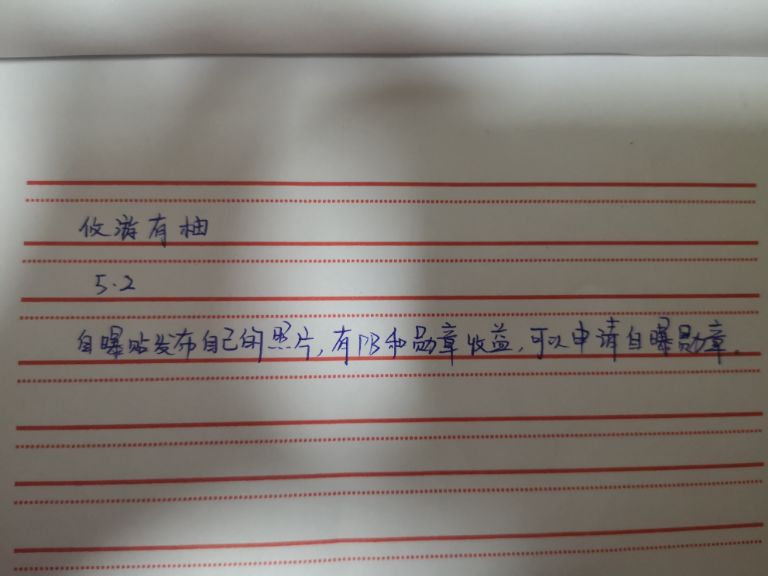 攸游有柚
5.2
自曝贴发布自己的照片,有PB和勋章收益,可以申请自曝勋章。